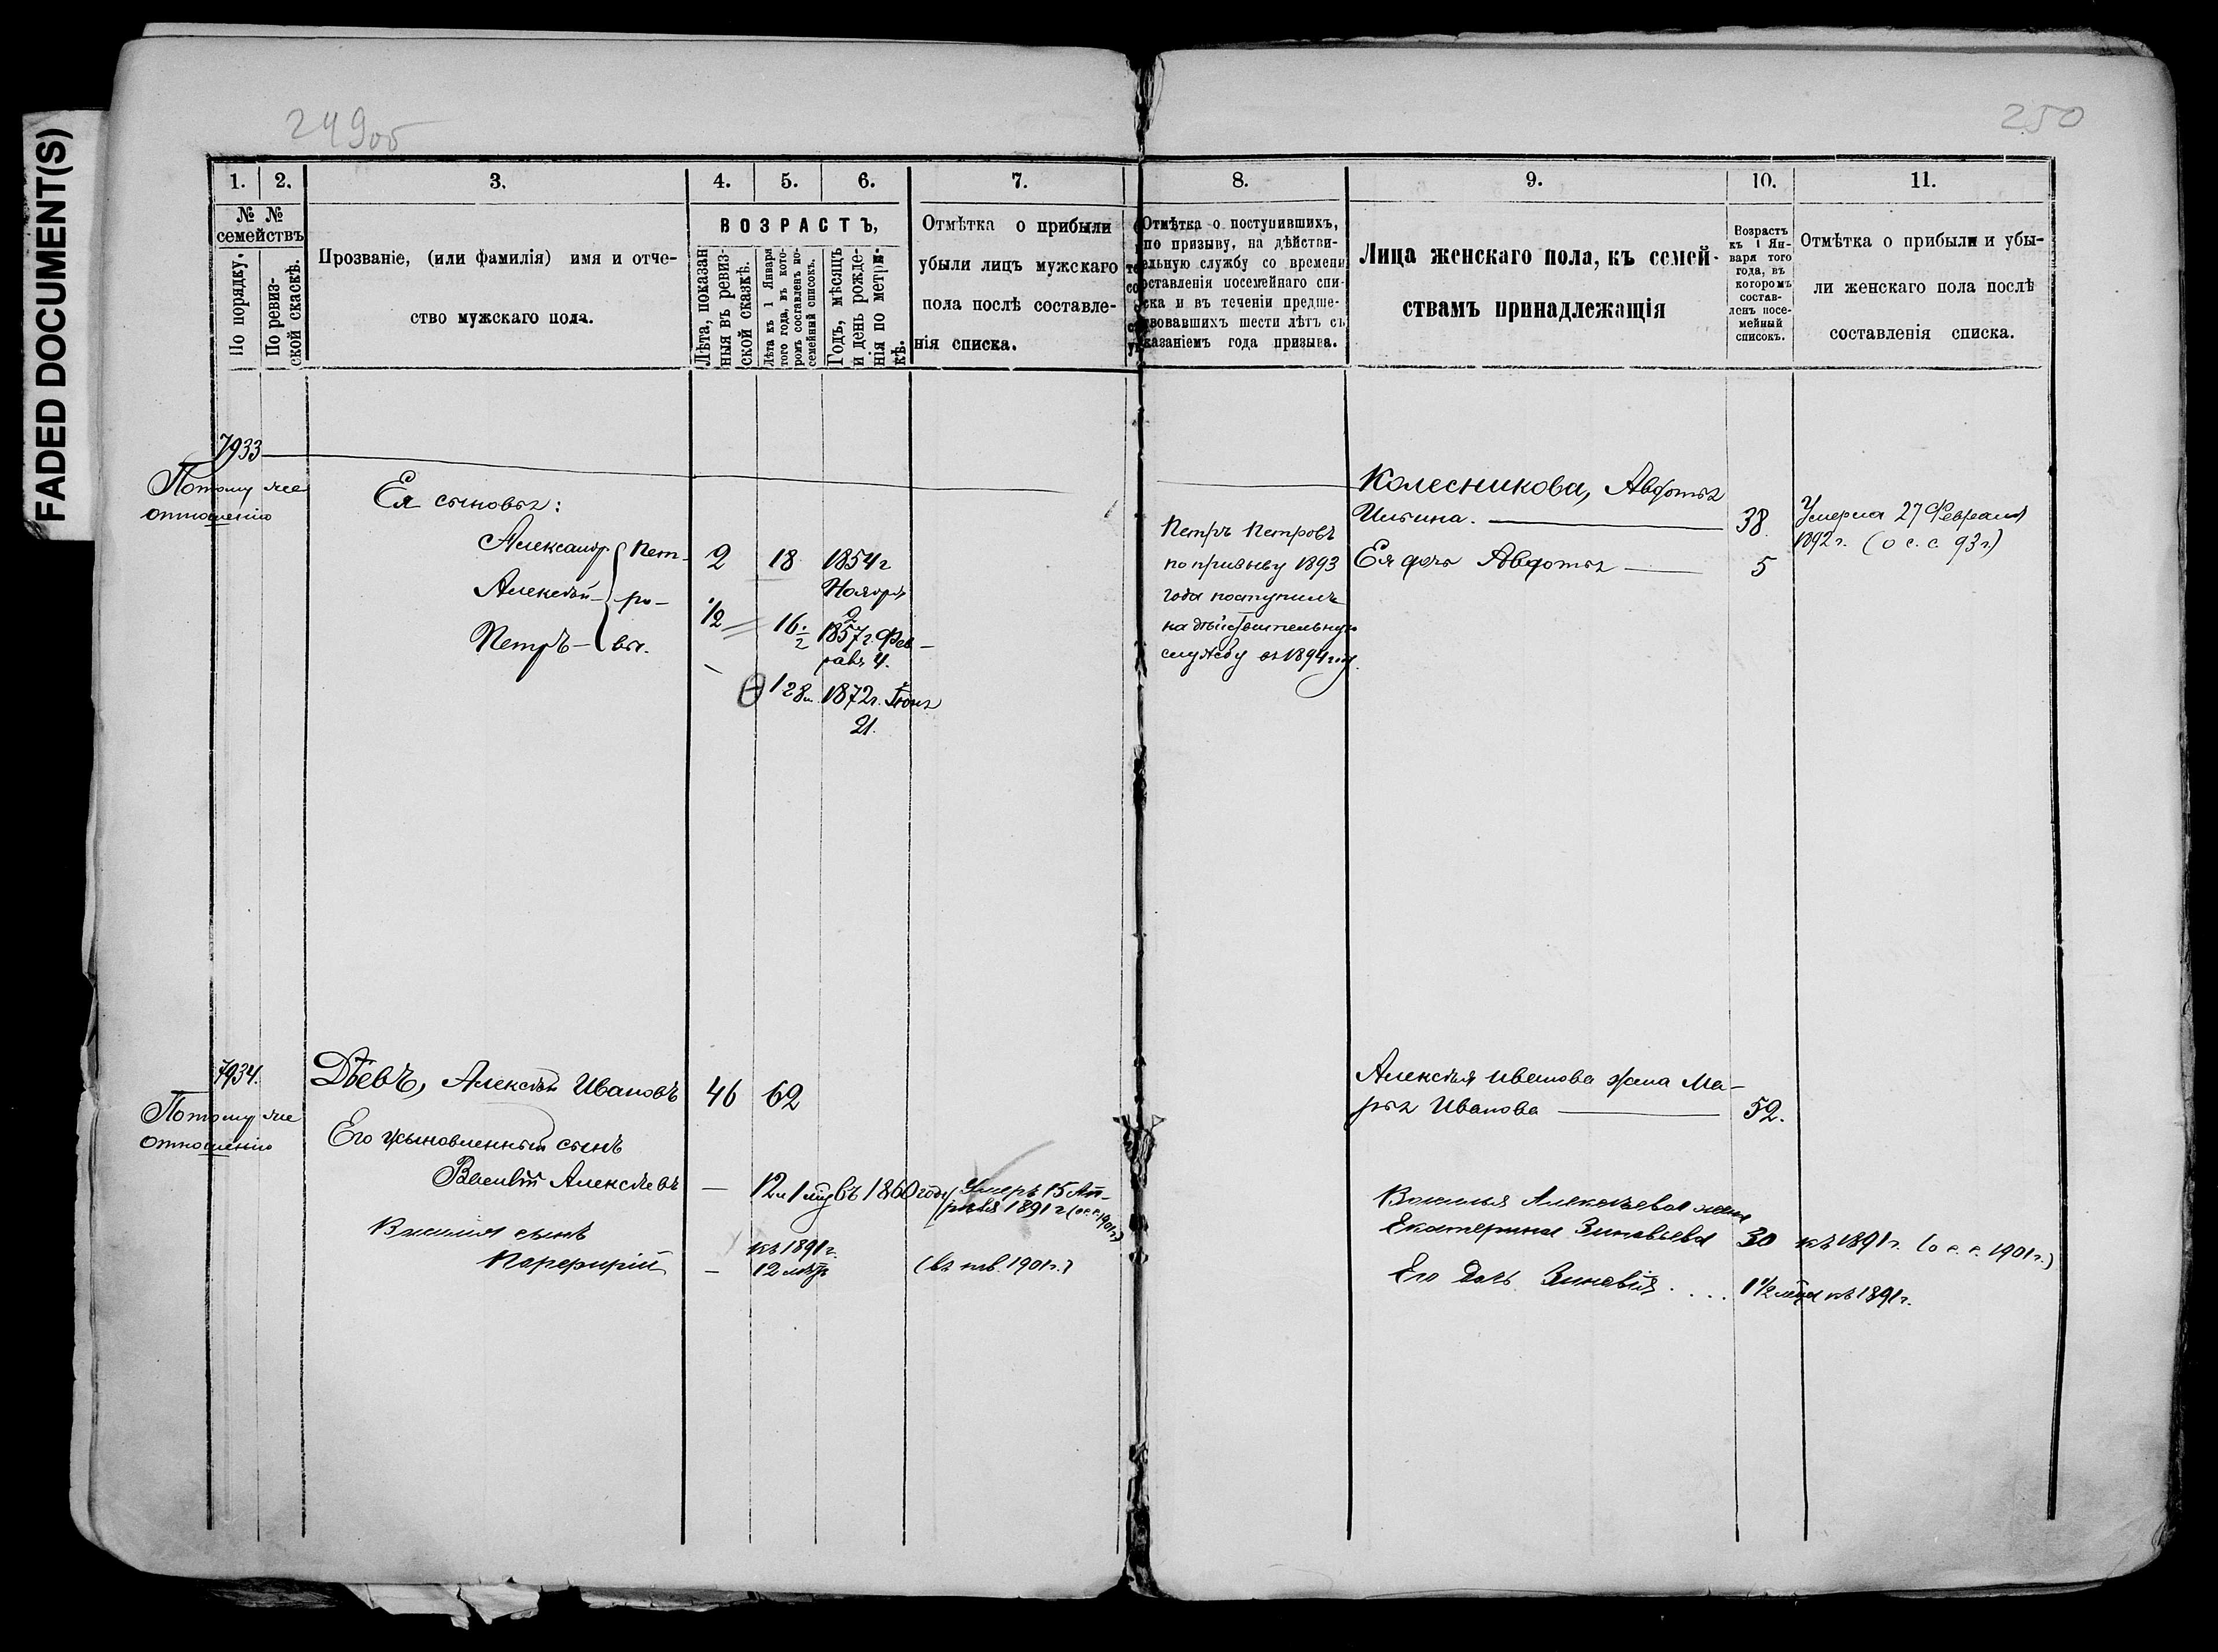 FADED DOCUMENT(S)
249об
250
1.
2.
3.
4.
5.
6.
7.
8.
9.
10.
11.
№ №
семействъ
По порядку.
По ревиз-
ской скаскѣ.
Прозваніе, (или фамилія) имя и отче-
ство мужскаго пола.
ВОЗРАСТЪ,
Лѣта, показан
ныя въ ревиз-
ской сказкѣ.
Лѣта къ 1 Января
того года, въ кото-
ромъ составленъ по-
семейный списокъ.
Годъ, мѣсяцъ
и день рожде-
нія по метри-
кѣ.
Отмѣтка о прибыли
убыли лицъ мужскаго
пола послѣ составле-
нія списка.
Отмѣтка о поступившихъ,
по призыву, на дѣйстви-
ельную службу со времени
оставленія посемейнаго спи-
ска и въ теченіи предше-
твовавшихъ шести лѣтъ съ
казаніемъ года призыва.
Лица женскаго пола, къ семей-
ствамъ принадлежащія
Возрастъ
къ 1 Ян-
варя того
года, въ
которомъ
состав-
ленъ посе-
мейный
списокъ.
Отмѣтка о прибыли и убы-
ли женскаго пола послѣ
составленія списка.
7933
Потому же
отношенію
Ея сыновья:
Александр Пет-
Алексѣй ро-
Петръ вы.
2 18 1854 г
Ноября
2
1/2 16 1/2 1857 г. Фев-
раля 4.
1 28 1872 г. Іюня
21.
Петръ Петровъ
по призыву 1893
года поступилъ
на дѣйствительную
службу въ 1894 году.
Колесникова, Авдотья
Ильина. 38.
Ея дочь Авдотья 5
Умерла 27 Февраля
1892 г. (о с. с. 93 г.)
7934.
Потому же
отношенію
Дѣевъ, Алексѣй Ивановъ 46 62
Его усыновленный сынъ
Василій Алексѣевъ — 12 1 въ 1860 году Умеръ 15 Ап-
рѣля 1891 г (о с. с. 1901 г.)
Василія сынъ
Порфирій — къ 1891 г.
12 лѣтъ (въ 1901 г.)
Алексѣя Иванова жена Ма-
рья Иванова 52.
Василья Алексѣева жена
Екатерина Зиновьева 30 къ 1891 г. (о с. с. 1901 г.)
Его дочь Зиновія . . . . 1 1/2 къ 1891 г.